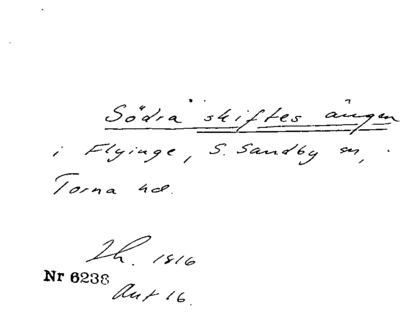 Södra skiftes ängen
i Flyinge, S. Sandby sn,
Torna hd.
1816
Nr 6238
Akt 16.